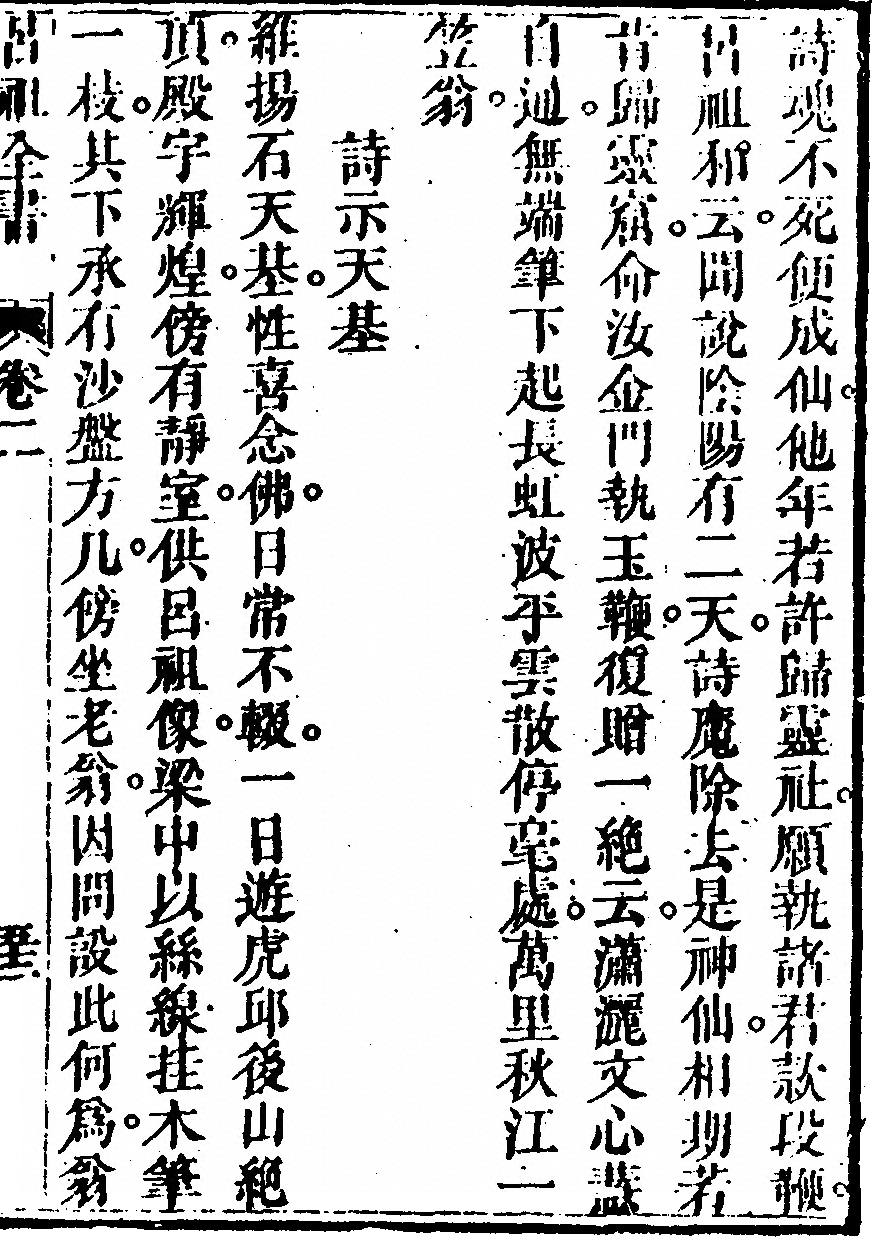 詩魂不死便成仙他年若許歸靈社願執諸君款段鞭
呂祖和云聞說陰陽有二天詩魔除去是神仙相期若
肯歸靈窟命汝金門執玉鞭復贈一絶云瀟灑文心蓋
自迪無端筆下起長虹波平雲散停毫處萬里秋江一
笠翁
詩示天基
維揚石天基性喜念佛日常不輟一日遊虎邱後山絶
頂殿宇輝煌傍有靜室供呂祖像梁中以絲線挂木筆
一枝其下承有沙盤方几傍坐老翁因問設此何爲翁
呂祖全書 卷二